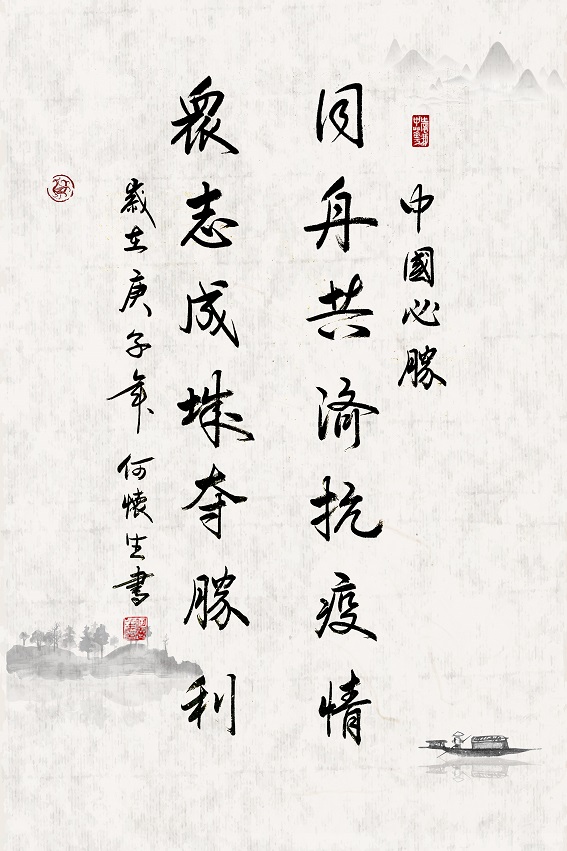 中國必勝
同舟共济抗疫情
眾志成城夺勝利
歲在庚子年 何懷生書